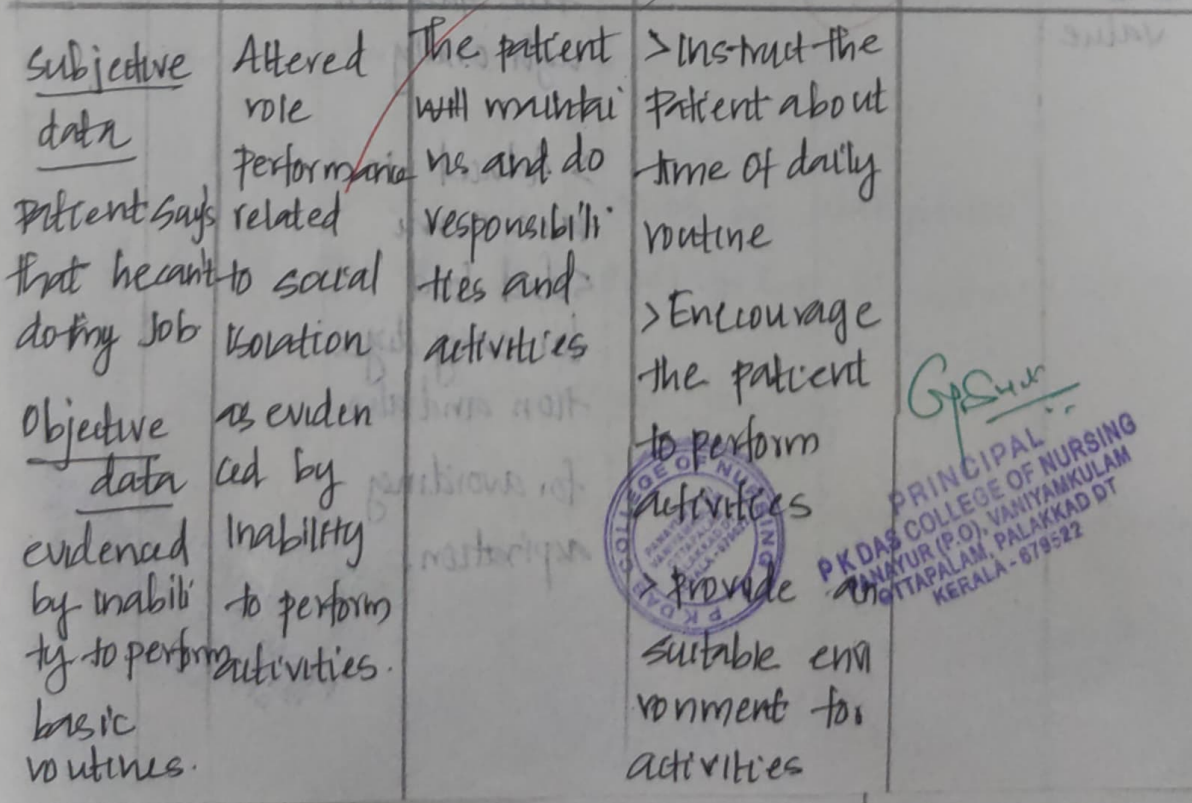 Subjective
data
Patient says
that he can't
do my Job
Objective
data
evidenced
by inabili
ty to perform
basic
routines.
Altered
role
performance
related
to social
isolation
as eviden
ced by
Inability
to perform
activities.
The patient
will maintai
ns and do
responsibili
ties and
activities
> Instruct the
patient about
time of daily
routine
> Enccourage
the patient
to perform
activities
> provide an
suitable envi
ronment for
activities
P K DAS COLLEGE OF NURSING
PRINCIPAL
P K DAS COLLEGE OF NURSING
PANAYUR (P.O), VANIYAMKULAM
OTTAPALAM, PALAKKAD DT
KERALA - 679522